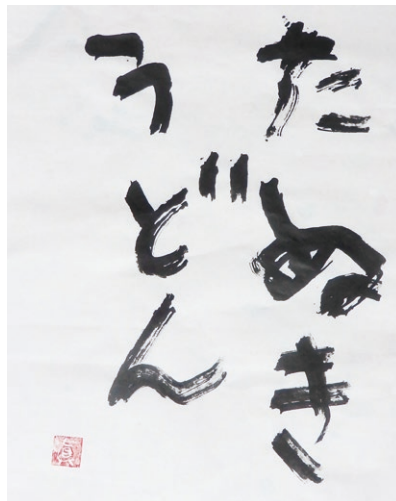 たぬき
うどん